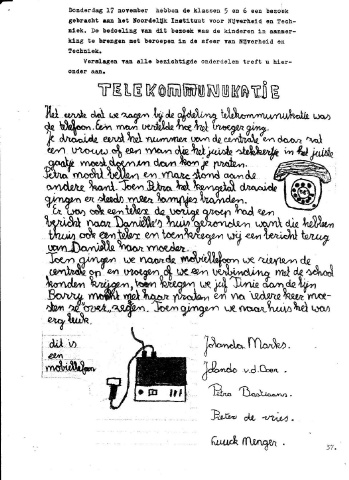 Donderdag 17 november hebben de klassen 5 en 6 een bezoek
gebracht aan het Noordelijk Instituut voor Nijverheid en Tech-
niek. De bedoeling van dit bezoek was de kinderen in aanmer-
king te brengen met beroepen in de sfeer van Nijverheid en
Techniek.
Verslagen van alle bezichtigde onderdelen treft u hier-
onder aan.
TELEKOMMUNUKATIE
Het eerste dat we zagen bij de afdeling telekommunukatie was
de telefoon. Een man vertelde hoe het vroeger ging.
Je draaide eerst het nummer van de centrale en daar zat
een vrouw of een man die het juiste stekkertje in het juiste
gaatje moest doen en dan kon je praten.
Petra mocht bellen en marc stond aan de
andere kant. Toen Petra het kengetal draaide
gingen er steeds meer lampjes branden.
Er was ook een telex de vorige groep had een
bericht naar Daniëlle's huis gezonden want die hebben
thuis ook een telex en toen kregen wij een bericht terug
van Daniëlle haar moeder.
Toen gingen we naar de mobiellefoon we riepen de
centrale op en vroegen of we een verbinding met de school
konden krijgen, toen kregen we juf Tinie aan de lijn
Barry mocht met haar praten en na iedere keer moe-
sten ze "over" zeggen. Toen gingen we naar huis het was
erg leuk.
dit is
een
mobiellefoon
Jolanda Marks.
Jolanda v.d.
Petra Bastiaans.
Pieter de vries.
Luuck Menger.
37.